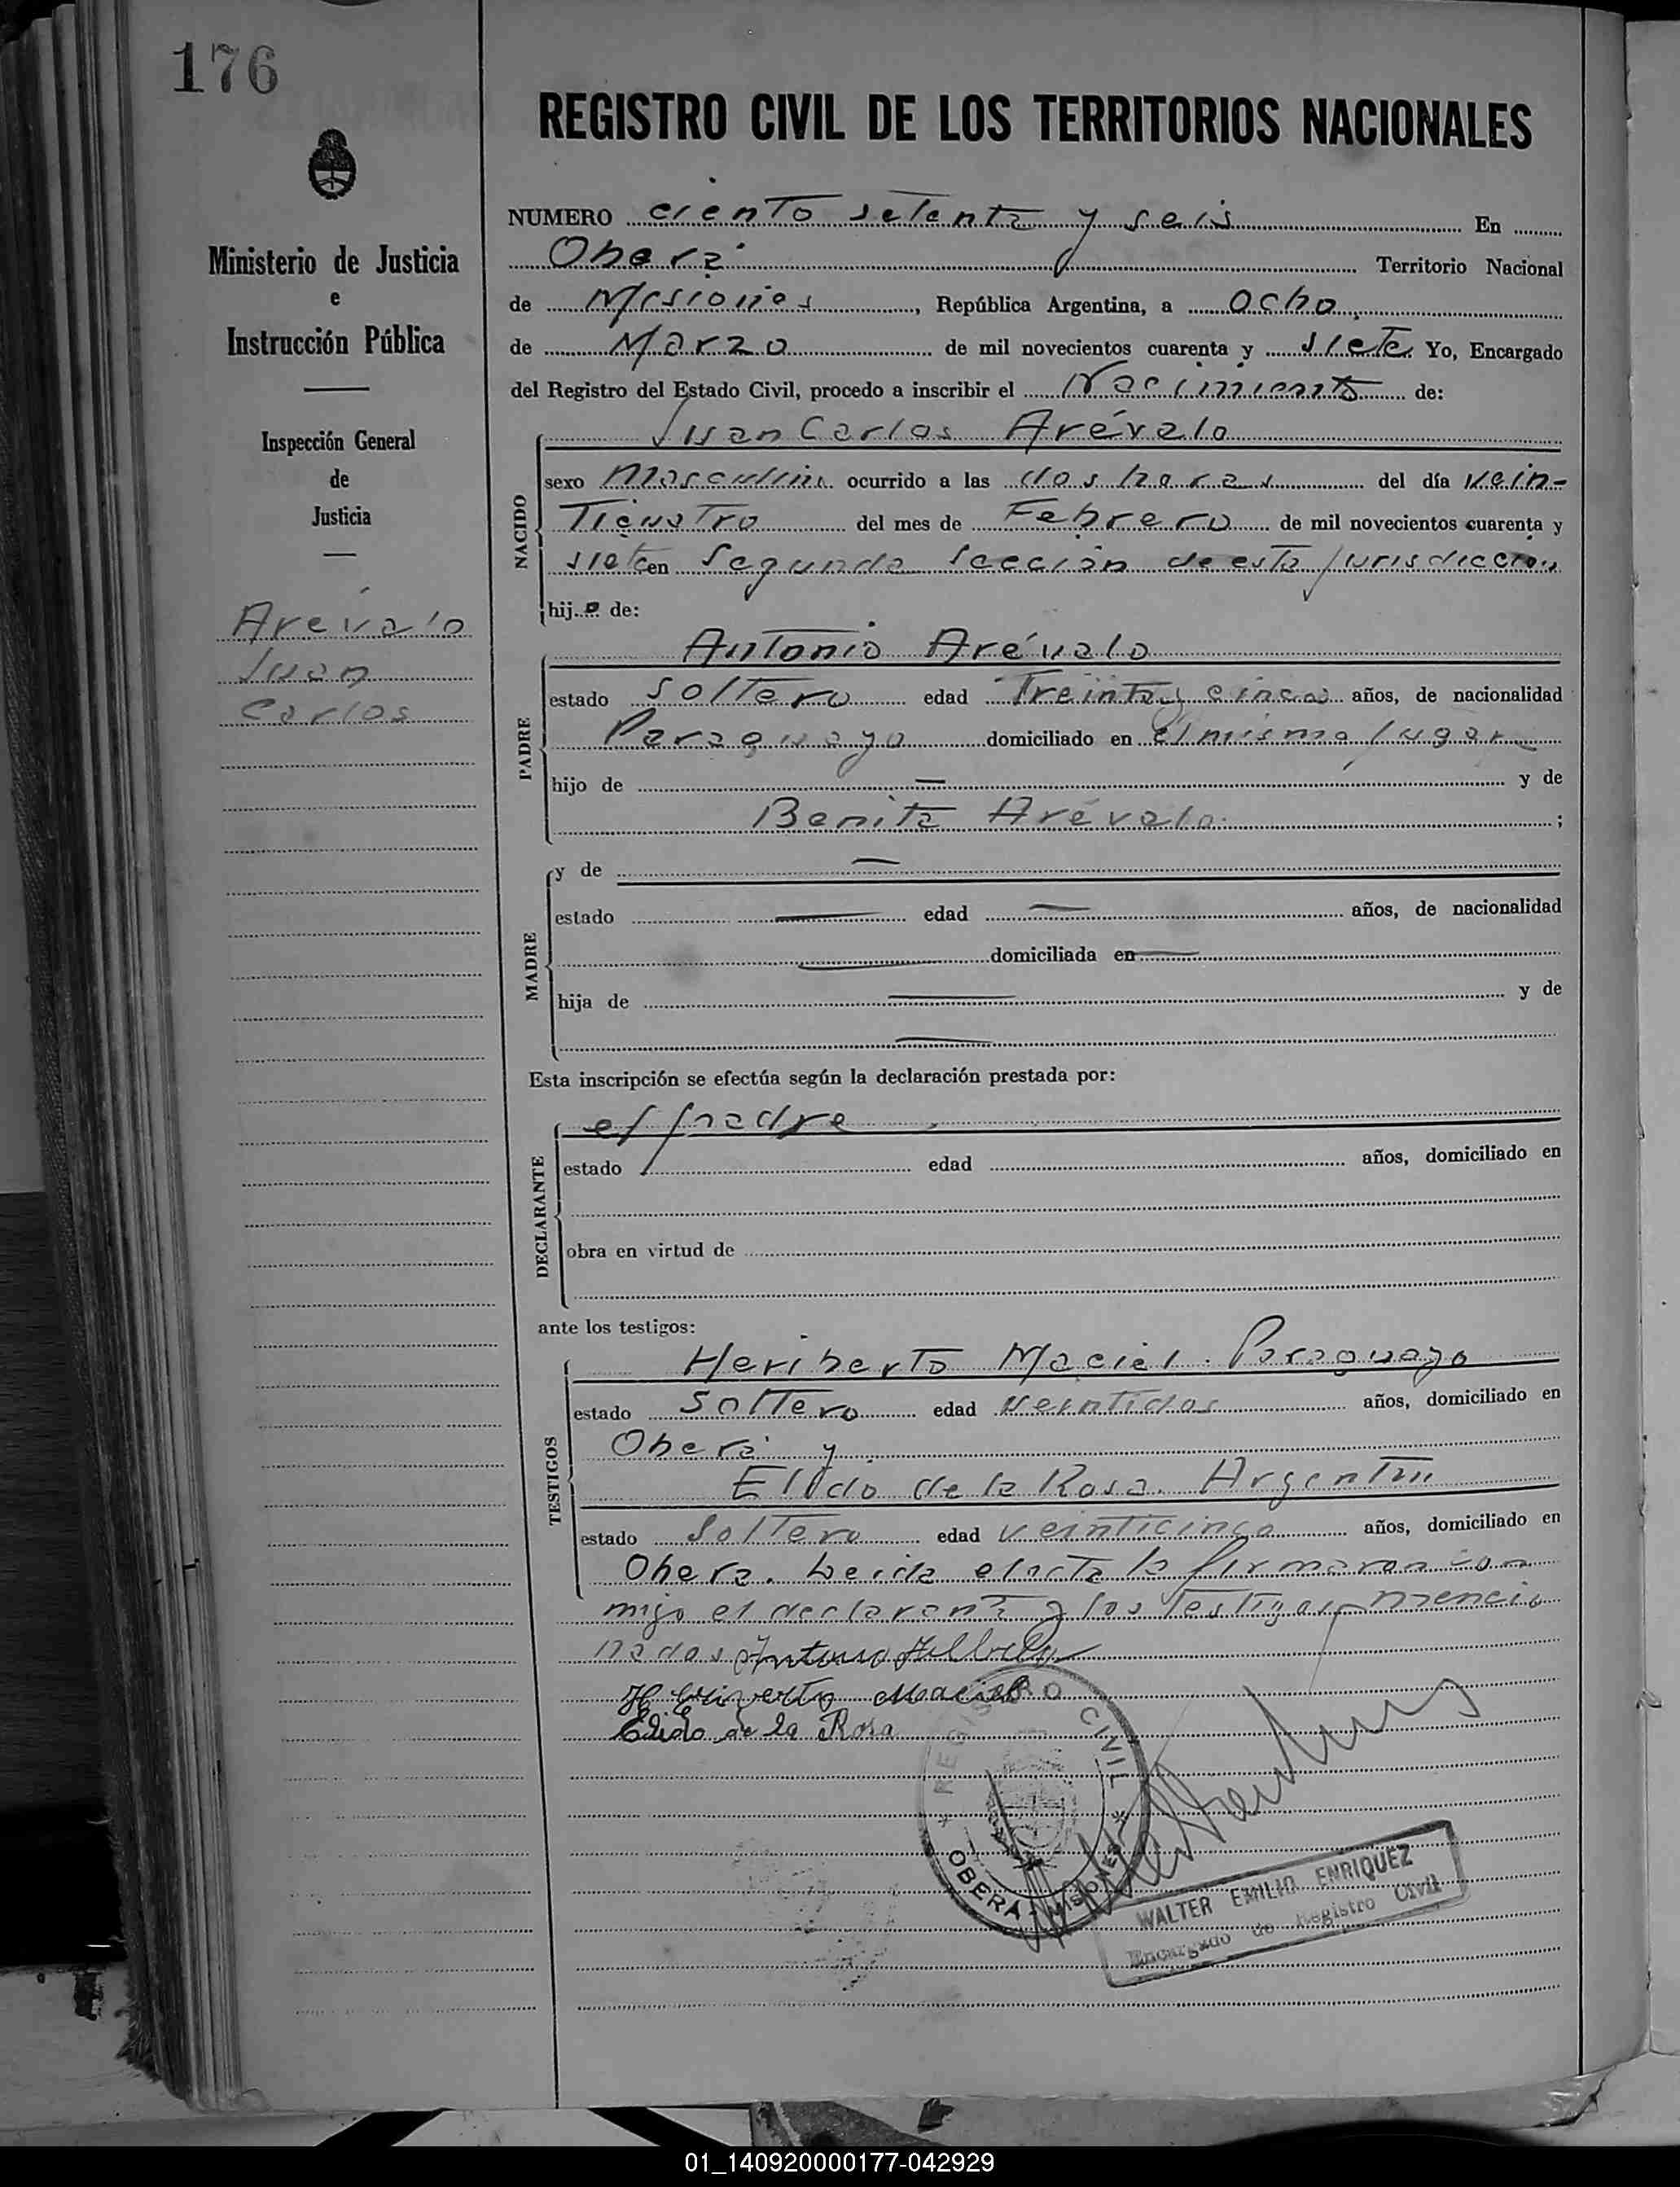 176
REGISTRO CIVIL DE LOS TERRITORIOS NACIONALES
Ministerio de Justicia
e
Instrucción Pública
Inspección General
de
Justicia
Arévalo
Juan
Carlos
NUMERO ciento setenta y seis En
Oberá Territorio Nacional
de Misiones, República Argentina, a ocho
de Marzo de mil novecientos cuarenta y siete Yo, Encargado
del Registro del Estado Civil, procedo a inscribir el Nacimiento de:
NACIDO
Juan Carlos Arévalo
sexo masculino ocurrido a las dos horas del día vein-
ticuatro del mes de Febrero de mil novecientos cuarenta y
siete en Segunda Sección de esta jurisdicción
hijo de:
PADRE
Antonio Arévalo
estado soltero edad Treinta y cinco años, de nacionalidad
Paraguayo domiciliado en el mismo lugar
hijo de — y de
Benita Arévalo ;
MADRE
y de —
estado — edad — años, de nacionalidad
— domiciliada en —
hija de — y de
—
Esta inscripción se efectúa según la declaración prestada por:
DECLARANTE
el padre
estado edad años, domiciliado en
obra en virtud de
ante los testigos:
TESTIGOS
Heriberto Maciel. Paraguayo
estado Soltero edad veintidos años, domiciliado en
Oberá y
Elido de la Rosa. Argentino
estado Soltero edad veinticinco años, domiciliado en
Oberá. Leida el acta la firmaron con
migo el declarante y los testigos mencio
nados Antonio
Heriverto Maciel
Elido de la Rosa
REGISTRO CIVIL
OBERÁ - MISIONES
WALTER EMILIO ENRIQUEZ
Encargado de Registro Civil
01_140920000177-042929